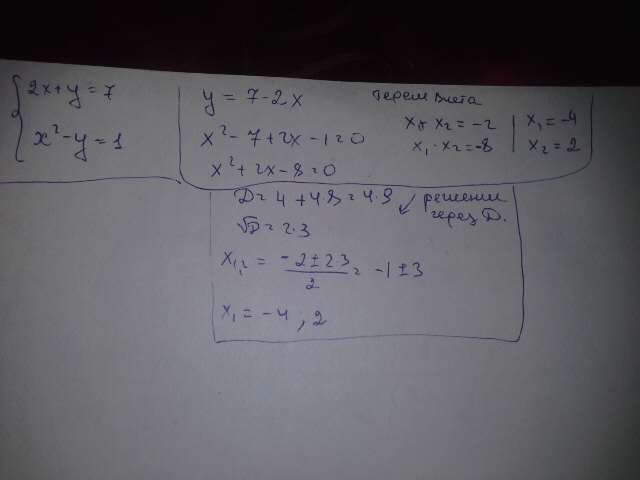 2x+y=7
x²-y=1
y = 7-2x
x²-7+2x-1=0
x²+2x-8=0
Терем Виета
x₁+x₂=-2 | x₁=-4
x₁·x₂=-8 | x₂=2
D=4+4·8=4·9
√D=2·3
решении
через D.
x₁,₂ = (-2±2·3)/2 = -1±3
x₁=-4; 2